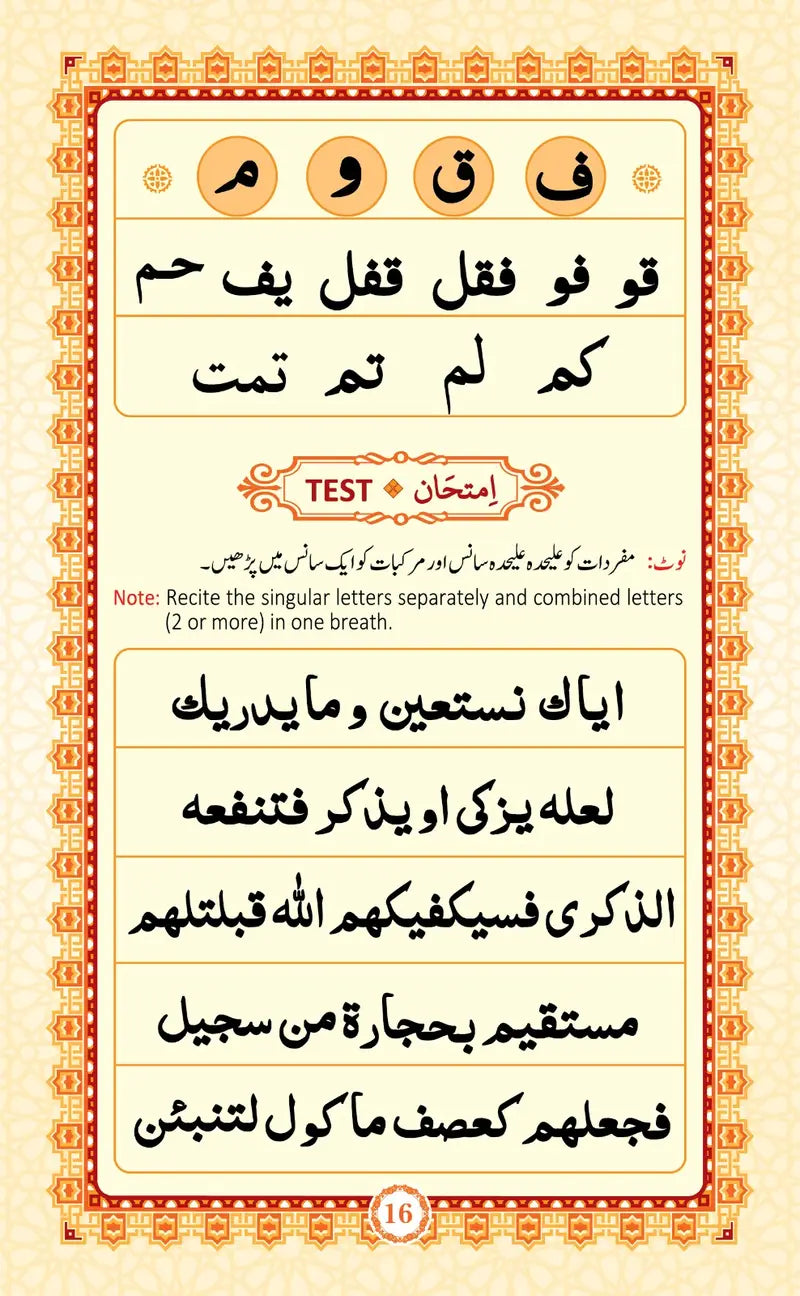 ف ق و م
قو فو فقل قفل یف حم
کم لم تم تمت
اِمتحَان TEST
نوٹ: مفردات کو علیحدہ علیحدہ سانس اور مرکبات کو ایک سانس میں پڑھیں۔
Note: Recite the singular letters separately and combined letters
(2 or more) in one breath.
ایاك نستعین و ما یدریك
لعله یزکی او یذکر فتنفعه
الذکری فسیکفیکهم الله قبلتلهم
مستقیم بحجارة من سجیل
فجعلهم کعصف ماکول لتنبئن
16